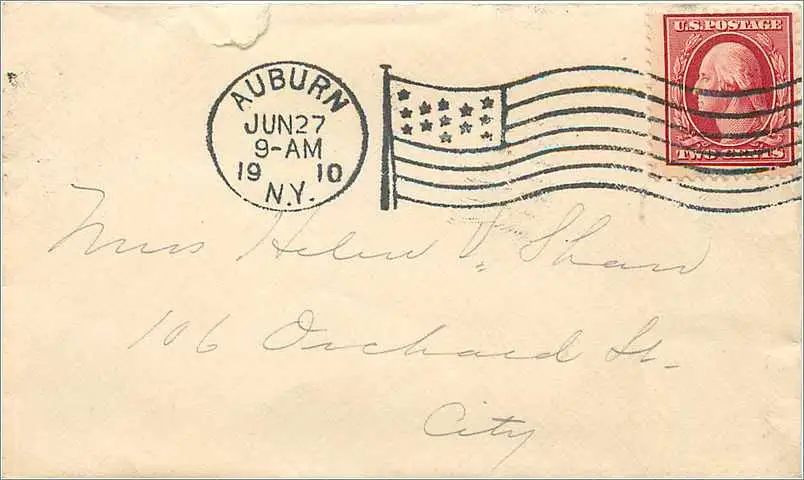 AUBURN
JUN27
9-AM
19 10
N.Y.
U.S.POSTAGE
TWO CENTS
Miss Helen V. Shaw
106 Orchard St.
City